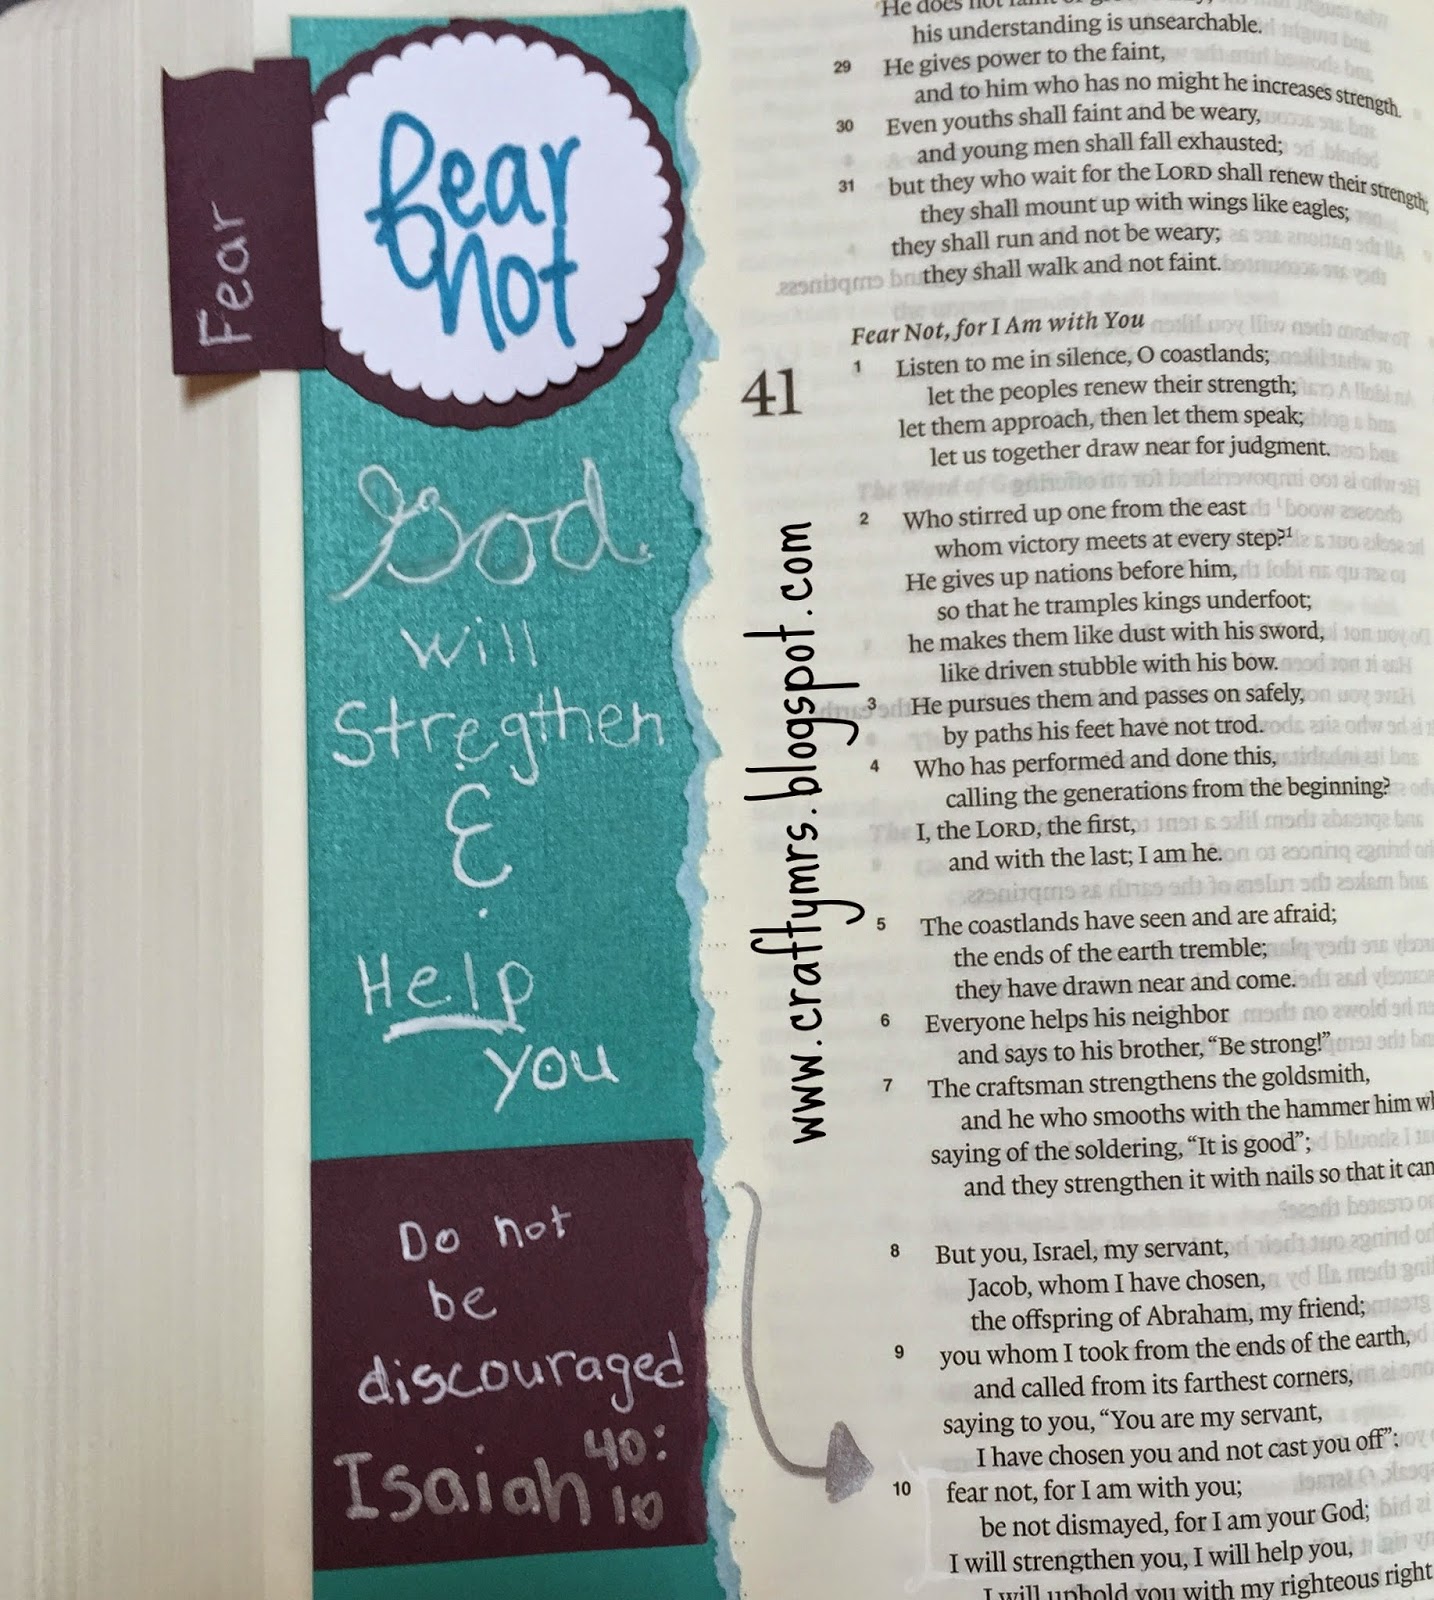 Fear
fear
not
God
will
Stregthen
&
Help
you
Do not
be
discouraged
Isaiah 40:
10
www.craftymrs.blogspot.com
his understanding is unsearchable.
29 He gives power to the faint,
and to him who has no might he increases strength.
30 Even youths shall faint and be weary,
and young men shall fall exhausted;
31 but they who wait for the LORD shall renew their strength;
they shall mount up with wings like eagles;
they shall run and not be weary;
they shall walk and not faint.
Fear Not, for I Am with You
41
1 Listen to me in silence, O coastlands;
let the peoples renew their strength;
let them approach, then let them speak;
let us together draw near for judgment.
2 Who stirred up one from the east
whom victory meets at every step?1
He gives up nations before him,
so that he tramples kings underfoot;
he makes them like dust with his sword,
like driven stubble with his bow.
3 He pursues them and passes on safely,
by paths his feet have not trod.
4 Who has performed and done this,
calling the generations from the beginning?
I, the LORD, the first,
and with the last; I am he.
5 The coastlands have seen and are afraid;
the ends of the earth tremble;
they have drawn near and come.
6 Everyone helps his neighbor
and says to his brother, “Be strong!”
7 The craftsman strengthens the goldsmith,
and he who smooths with the hammer him
saying of the soldering, “It is good”;
and they strengthen it with nails so that it
8 But you, Israel, my servant,
Jacob, whom I have chosen,
the offspring of Abraham, my friend;
9 you whom I took from the ends of the earth,
and called from its farthest corners,
saying to you, “You are my servant,
I have chosen you and not cast you off”;
10 fear not, for I am with you;
be not dismayed, for I am your God;
I will strengthen you, I will help you,
I will uphold you with my righteous right